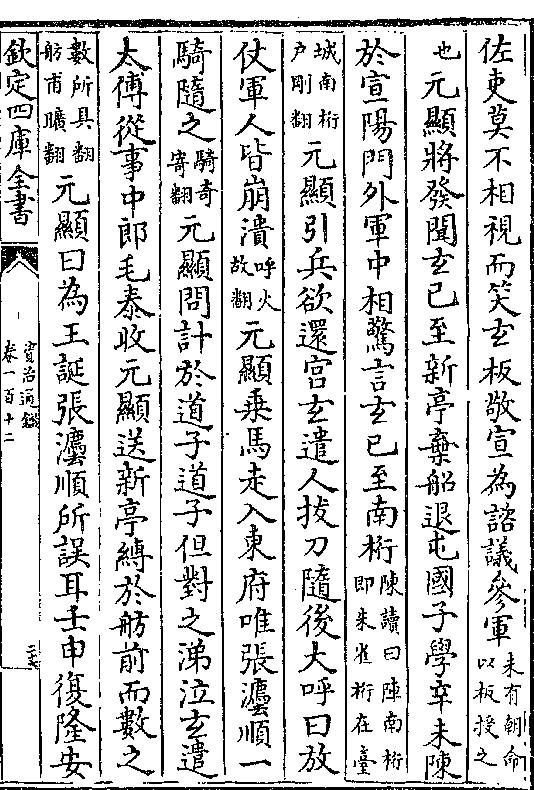 佐吏莫不相視而笑玄板敬宣為諮議參軍未有朝命以板授之
也元顯將發聞玄已至新亭棄船退屯國子學辛未陳
於宣陽門外軍中相驚言玄已至南桁陳讀曰陣南桁即朱雀桁在臺
城南桁户剛翻元顯引兵欲還宫玄遣人拔刀隨後大呼曰放
仗軍人皆崩潰呼火故翻元顯乗馬走入東府唯張灋順一
騎隨之騎奇寄翻元顯問計於道子道子但對之涕泣玄遣
太傅從事中郎毛泰收元顯送新亭縛於舫前而數之
數所具翻舫甫曠翻元顯曰為王誕張灋順所誤耳壬申復隆安
欽定四庫全書
資治通鑑
卷一百十二